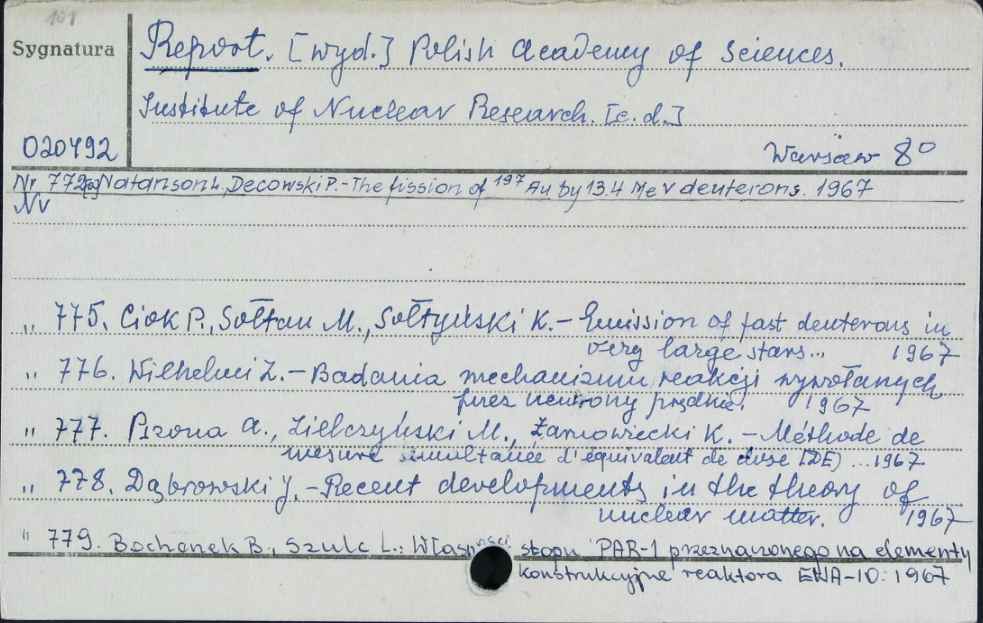 101
Sygnatura
Report. [wyd.] Polish Academy of Sciences.
Institute of Nuclear Research. [c.d.]
020492
Warsaw 8°
Nr 772 Natanson L., Decowski P. - The fission of 197 Au by 13.4 MeV deuterons. 1967
Nr
" 775. Ciok P., Sołtan M., Sołtyński K. - Emission of fast deuterons in
very large stars... 1967
" 776. Wilhelmi Z. - Badania mechanizmu reakcji wywołanych
przez neutrony prędkie. 1967
" 777. A., Zielczyński M., Żarnowiecki K. - Méthode de
mesure simultanée d'équivalent de dose (DE) ... 1967
" 778. Dąbrowski J. - Recent developments in the theory of
nuclear matter. 1967
" 779. Bochenek B., Szulc L.: Własności stopu PAR-1 przeznaczonego na elementy
konstrukcyjne reaktora EWA-10. 1967